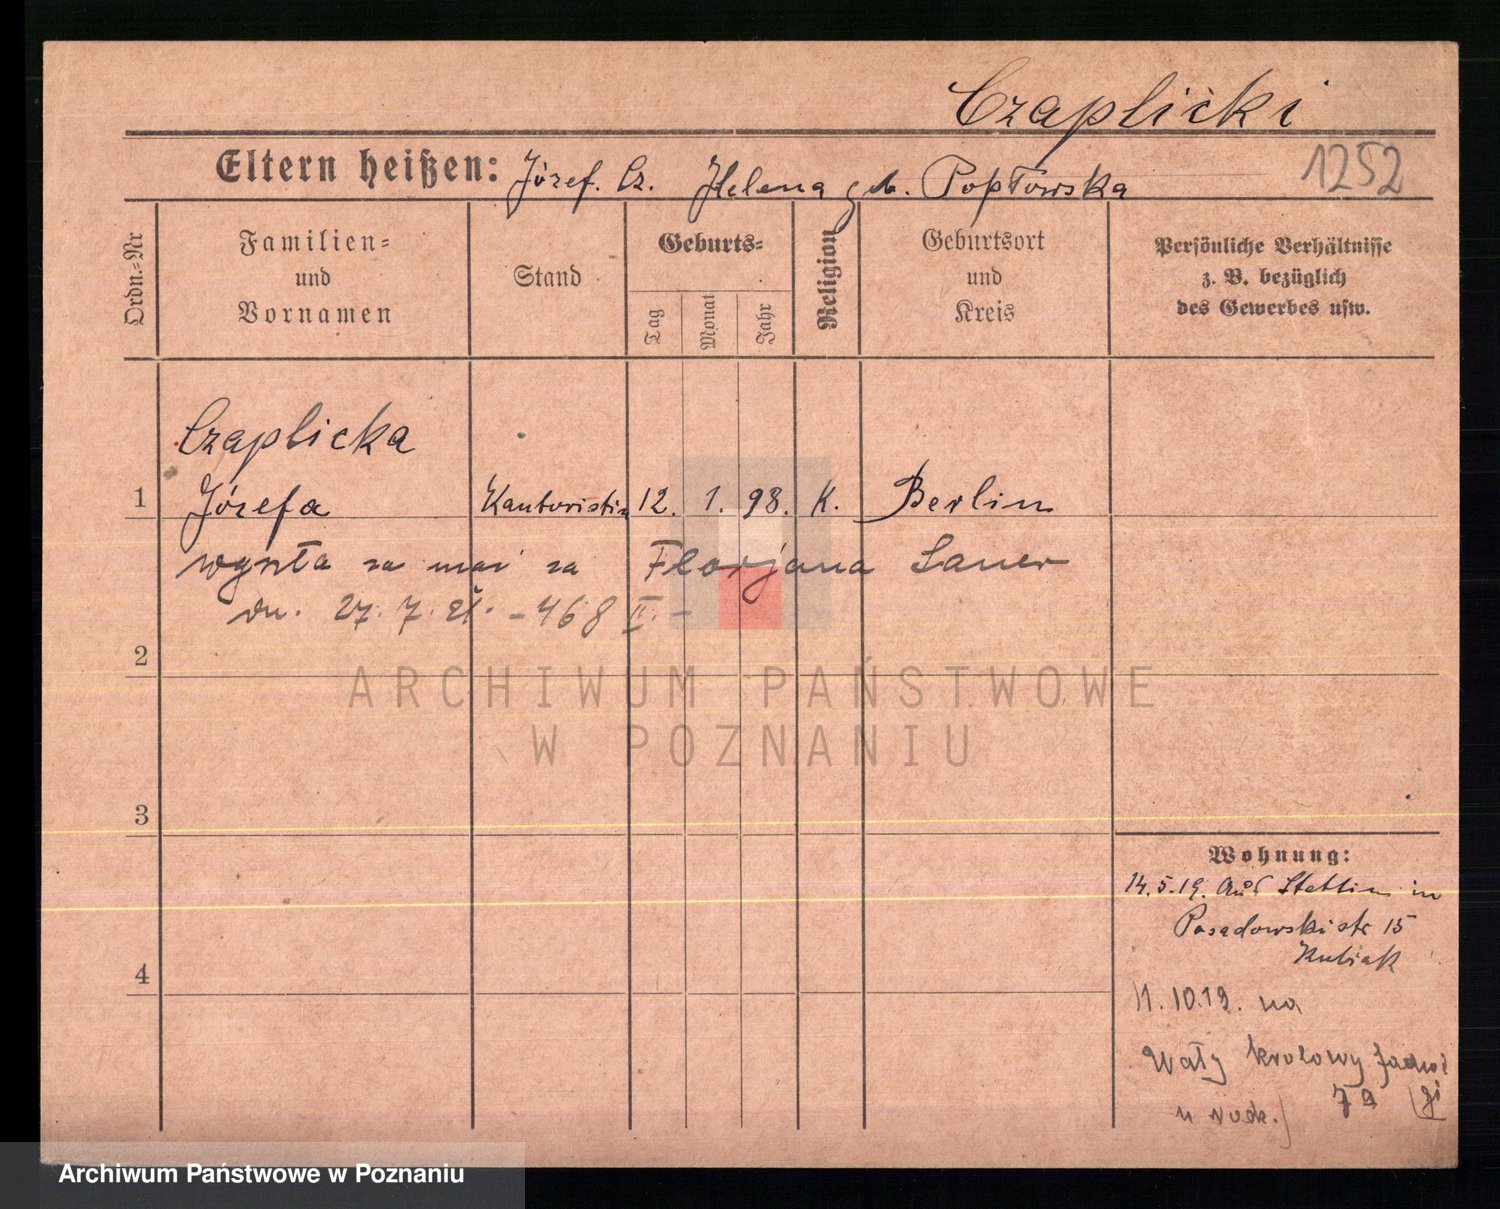 Czaplicki
1252
Eltern heißen: Józef. Cz. Helena geb. Popłowska
Ordn.=Nr
Familien=
und
Vornamen
Stand
Geburts=
Tag
Monat
Jahr
Religion
Geburtsort
und
Kreis
Persönliche Verhältnisse
z. B. bezüglich
des Gewerbes usw.
Czaplicka
1 Józefa Kantoristin 12. 1. 98. K. Berlin
wyszła za mąż za Florjana Sauer
dn. 27. 7. 21. - 468 II. -
2
ARCHIWUM PAŃSTWOWE
W POZNANIU
3
Wohnung:
14.5.19. aus Stettin in
Posadowskistr 15
Kubiak
4
11.10.19. na
Wały krolowy Jadwi
7a gi
u rodz.
Archiwum Państwowe w Poznaniu